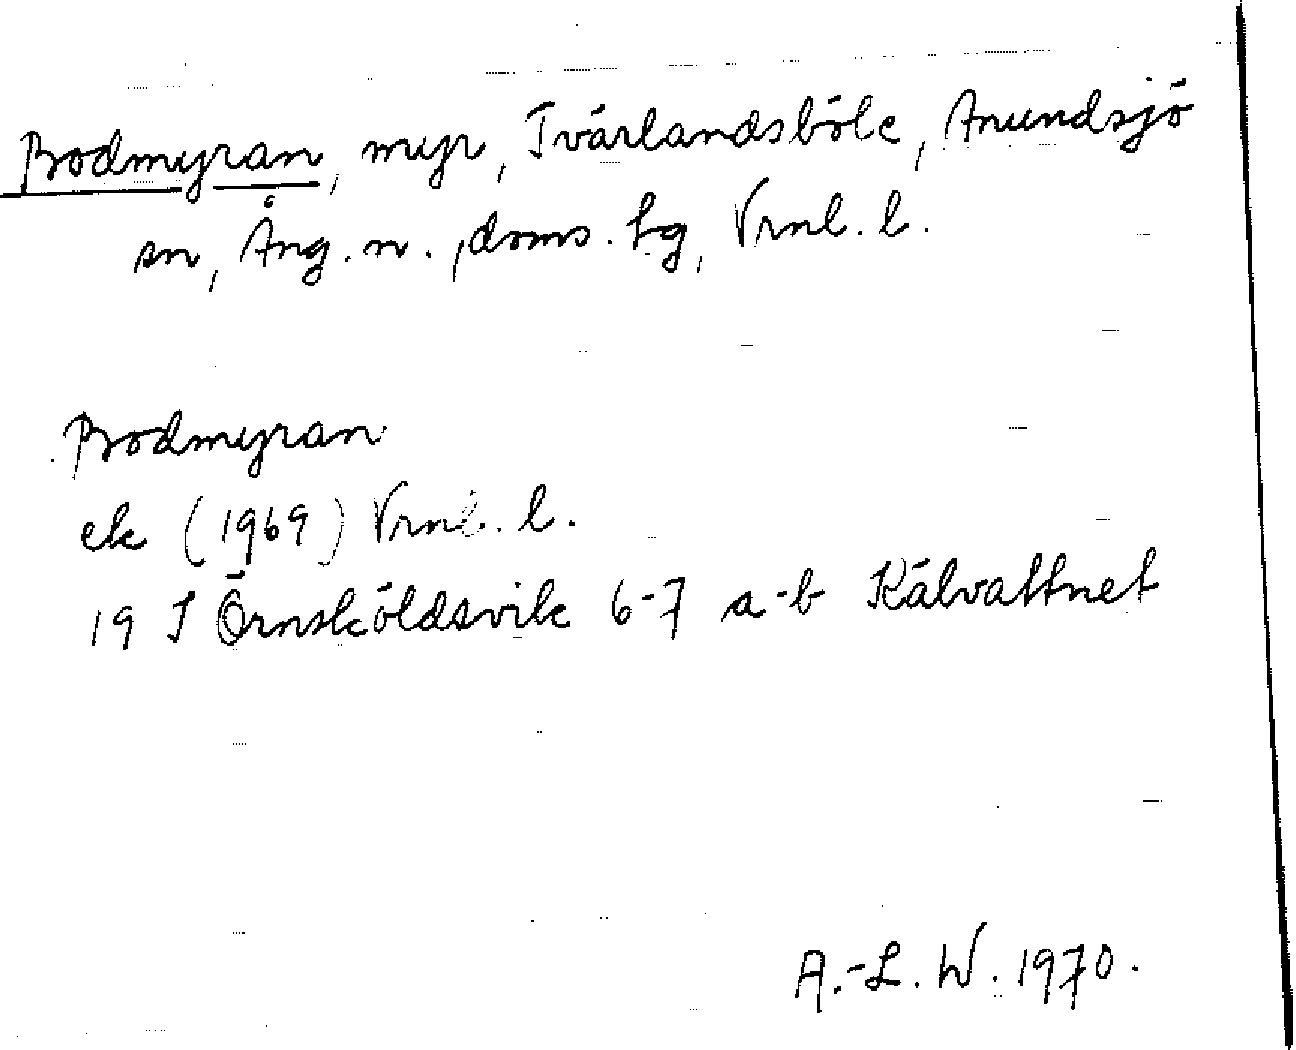 Bodmyran, myr, Tvärlandsböle, Anundsjö
sn, Ång. n., doms. hg, Vrnl. l.
Bodmyran
ek (1969) Vrnl. l.
19 I Örnsköldsvik 6-7 a-b Kälvattnet
A.-L. W. 1970.